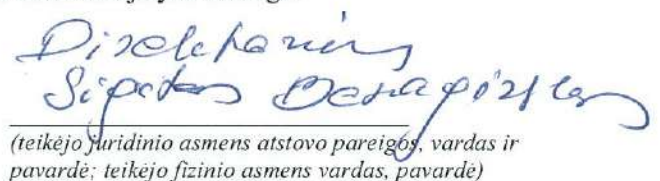 Direktorius
Sigitas
(teikėjo juridinio asmens atstovo pareigos, vardas ir
pavardė; teikėjo fizinio asmens vardas, pavardė)